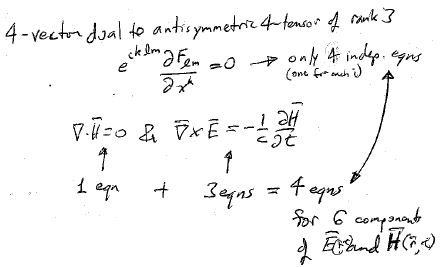 4-vector dual to antisymmetric 4-tensor of rank 3
e^{iklm} ∂F_{lm}/∂x^k = 0 → only 4 indep. eqns
(one for each i)
∇·H⃗=0 & ∇⃗×E⃗ = -1/c ∂H⃗/∂t
1 eqn + 3 eqns = 4 eqns
for 6 components
of E⃗ and H⃗(r⃗,t)